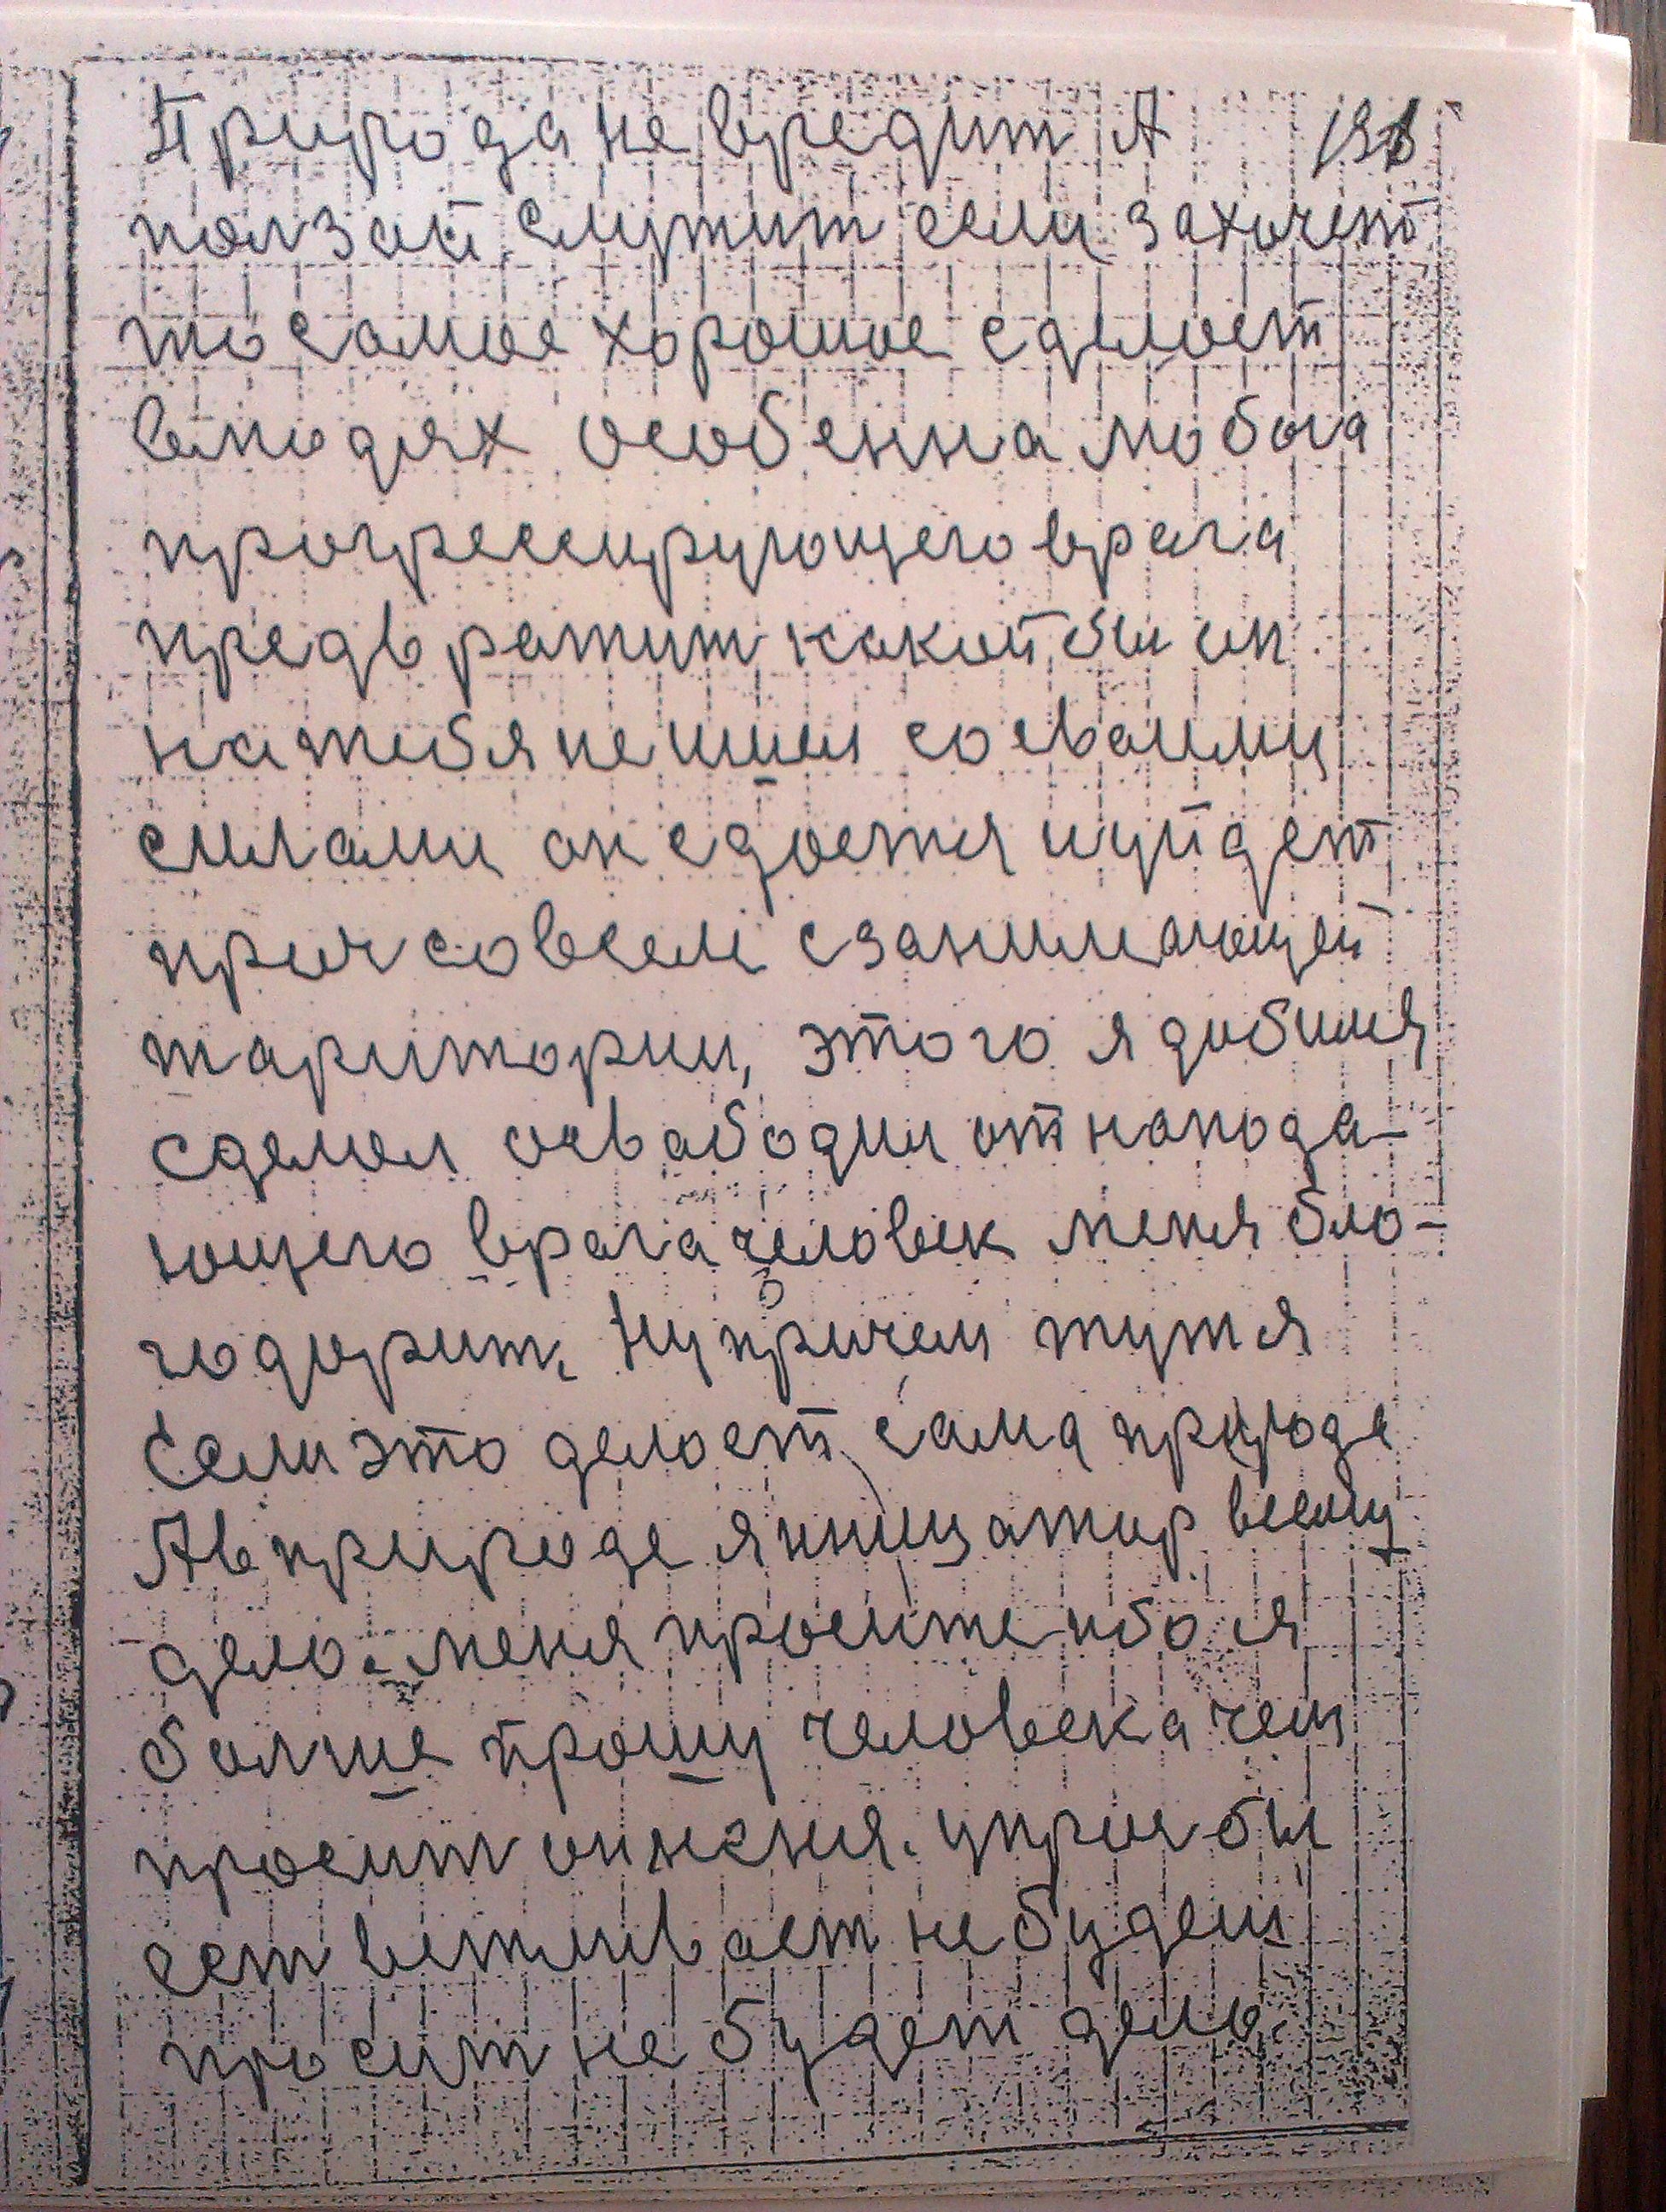 Природа не вредит А
ползай служит если захочет
то самое хорошое сделает
влюдях особенна любога
прогрессирующего врага
предвратит какой бы он
на тибя не шшел со сваими
силами он сдается и уйдет
проч совсем сзанимающей
таритории, этого я добился
сделал освабодил от напада-
ющего врага человек меня бло-
годорит. Ну причем тут я
Если это делоет сама природа
Ав природе я инициатор всему
дело. меня просите ибо я
болше прошу человека чем
просит он меня. упрозбы
сст вытливает не будеш
просит не будет дела.